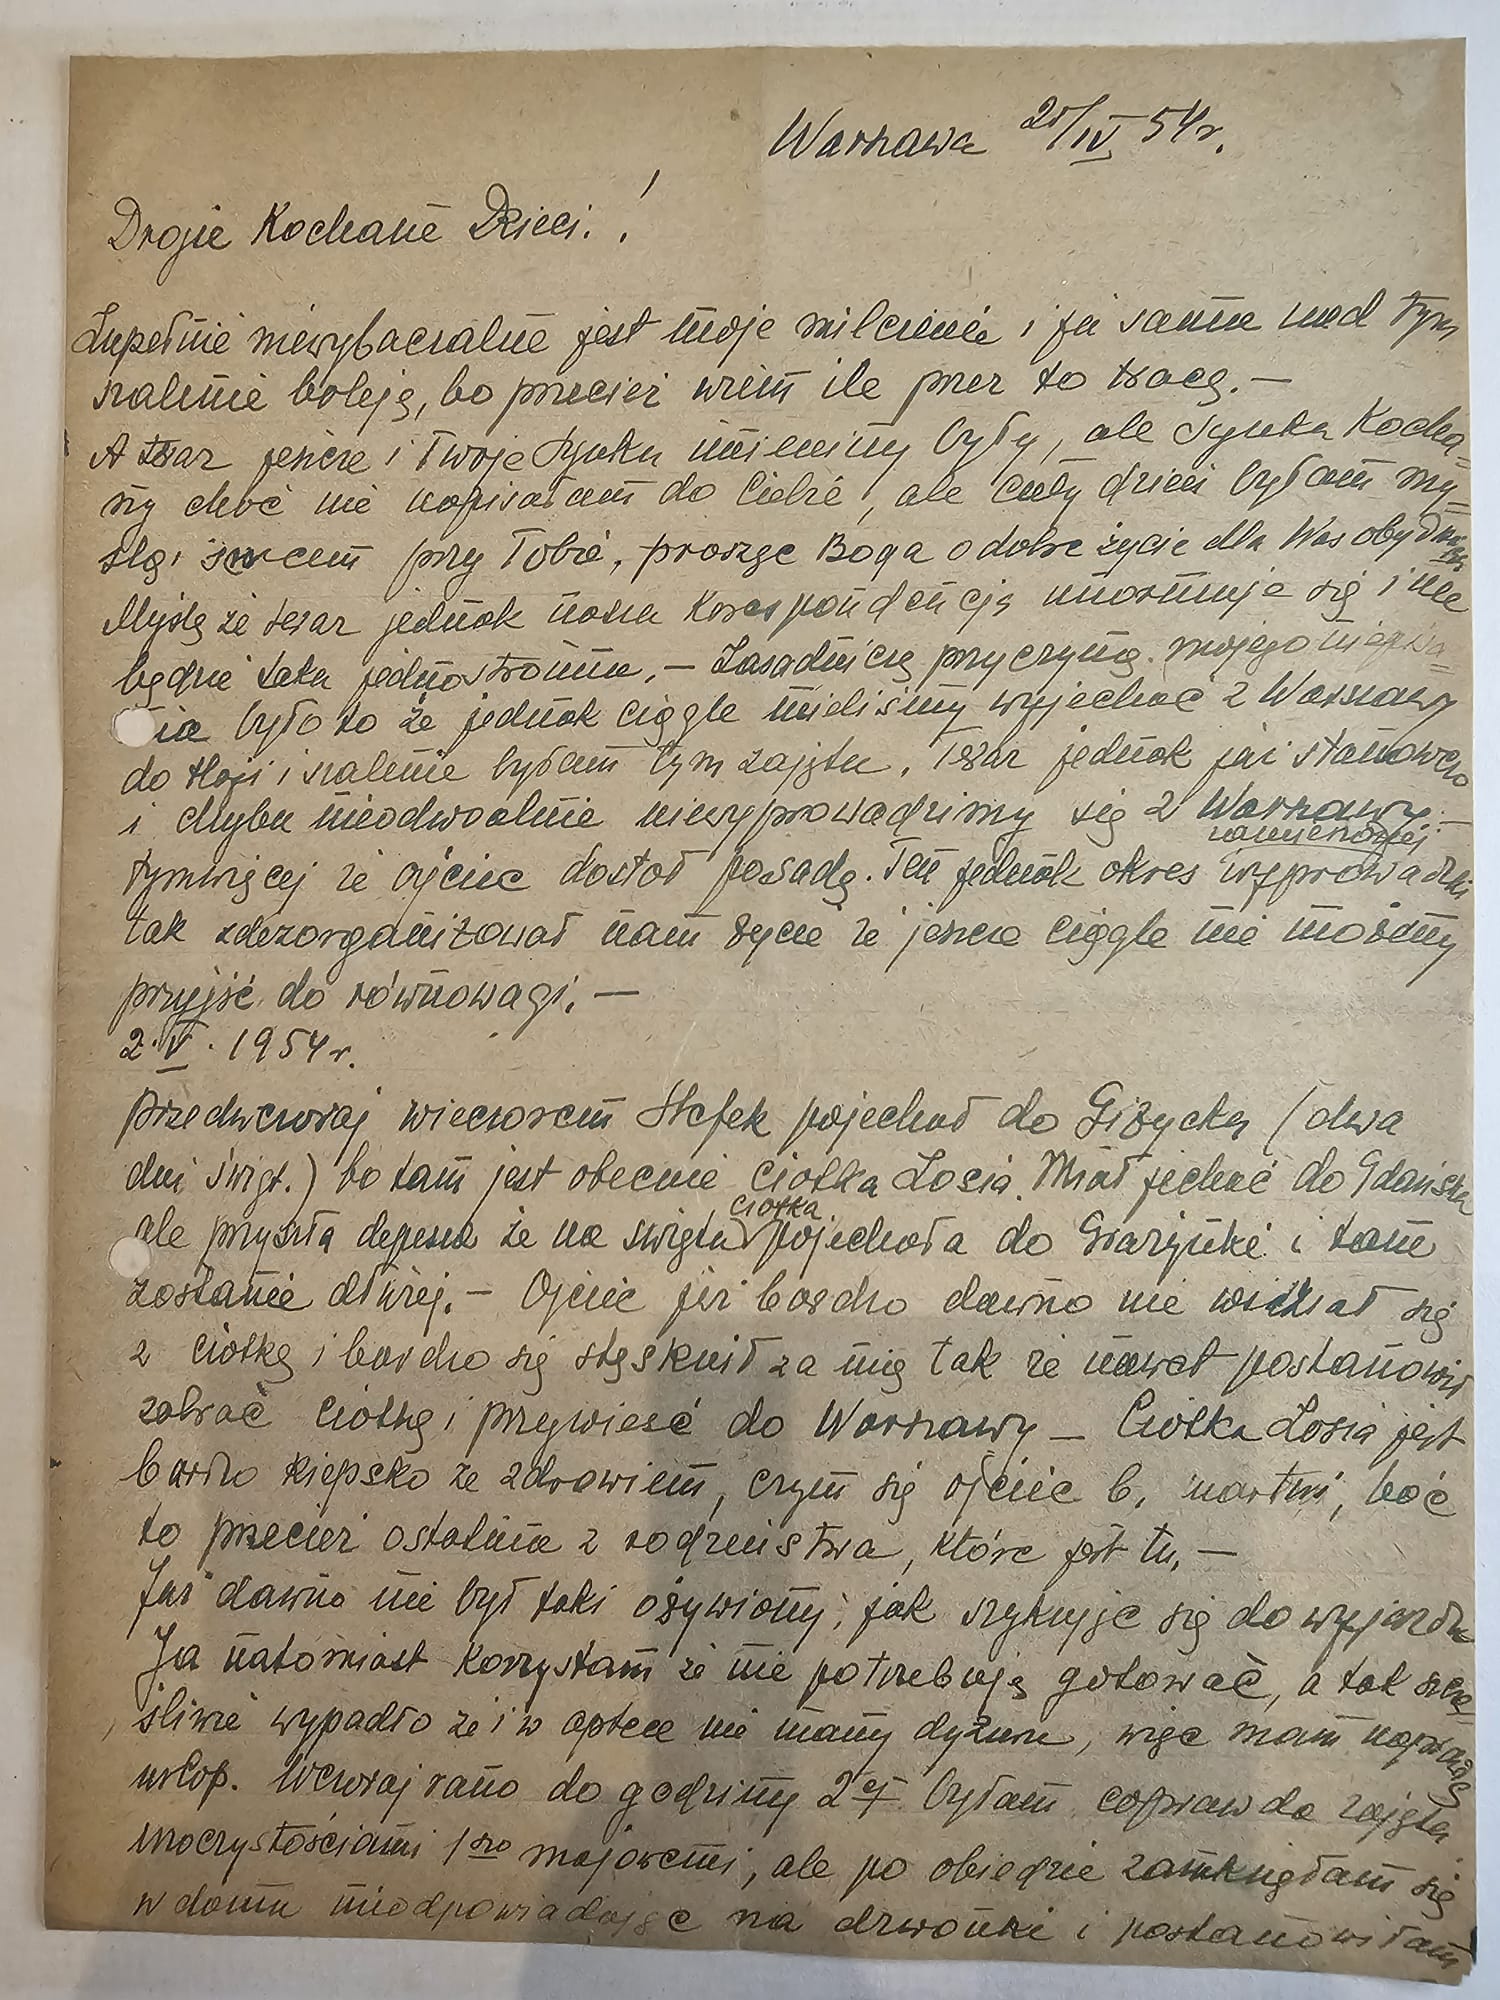 Warszawa /IV 54r.
Drogie Kochane Dzieci.!
Zupełnie niewybaczalne jest moje milczenie i ja sama nad tym
szalenie boleję, bo przecież wiem ile przez to tracę. —
A teraz jeszcze i Twoje Synku imieniny były, ale Synku Kocha=
ny choć nie napisałam do Ciebie, ale cały dzień byłam my=
slą i sercem przy Tobie, prosząc Boga o dobre życie dla Was obydwu
Myślę że teraz jednak nasza korespondencja unormuje się i nie
będzie taka jednostronna. — Zasadniczą przyczyną mojego niepisa=
nia było to że jednak ciągle mieliśmy wyjechać z Warszawy
do i szalenie byłam tym zajęta. Teraz jednak już stanowczo
i chyba nieodwoalnie niewyprowadzimy się z Warszawy —
tymwięcej że ojciec dostał posadę. Ten jednak okres zamierzonej wyprowadzki
tak zdezorganizował nam życie że jeszcze ciągle nie możemy
przyjść do równowagi. —
2.V.1954r.
Przedwczoraj wieczorem Stefek pojechał do Giżycka (dwa
dni świąt.) bo tam jest obecnie ciotka Zosia. Miał jechać do Gdańska
ale przyszła depesza że na święta ciotka pojechała do Grażynki i tam
zostanie dłużej. — Ojciec już bardzo dawno nie widział się
z ciotką i bardzo się stęsknił za nią tak że nawet postanowił
zabrać ciotkę i przywieść do Warszawy — Ciotka Zosia jest
bardzo kiepsko ze zdrowiem, czym się ojciec b. martwi, boć
to przecież ostatnia z rodzeństwa, które jest tu. —
Już dawno nie był taki ożywiony, jak szykując się do wyjazdu
Ja natomiast korzystam że nie potrzebuję gotować, a tak szczę=
śliwie wypadło że i w aptece nie mamy dyżuru, więc mam naprawdę
urlop. Wczoraj rano do godziny 2ej byłam coprawda zajęta
uroczystościami 1szo majowemi, ale po obiedzie zamknęłam się
w domu nieodpowiadając na dzwonki i postanowiłam